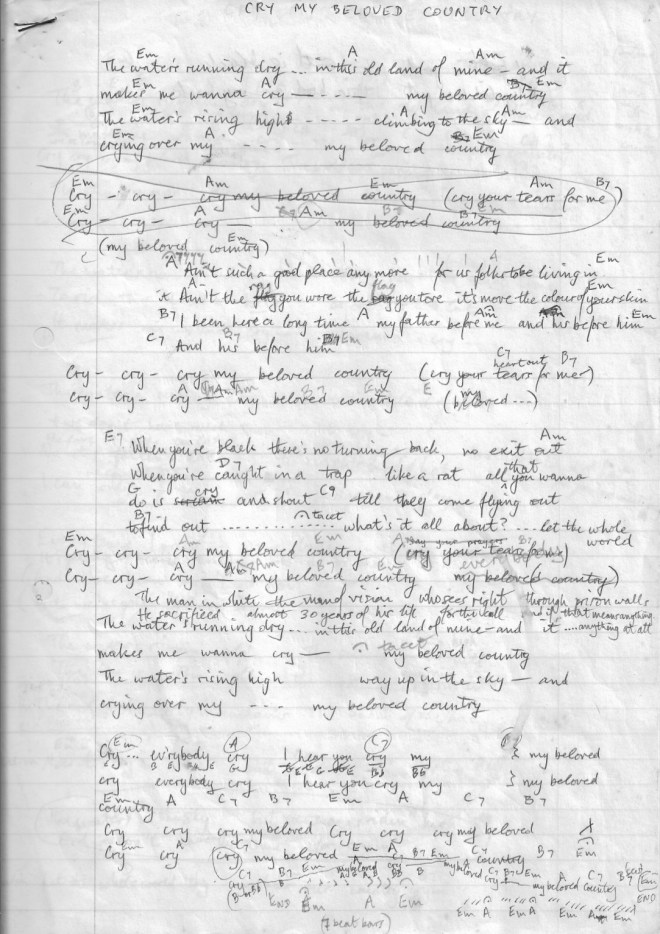 CRY MY BELOVED COUNTRY
Em A Am
The water's running dry ... in this old land of mine - and it
Em A B7 Em
makes me wanna cry - - - - - my beloved country
Em A Am
The water's rising high - - - - - climbing to the sky - and
Em A B7 Em
crying over my - - - - my beloved country
Em Am Em Am B7
Cry - cry - cry my beloved country (cry your tears for me)
Em A Am B7
Cry - cry - cry my beloved country
Em
(my beloved country)
A Em
Ain't such a good place any more for us folks to be living in
rag flag Em
Ain't the flag you wore the you tore it's more the colour of your skin
B7 A Am Em
I been here a long time my father before me and his before him
C7 B7 B7 Em
And his before him
C7 heart out B7
Cry - cry - cry my beloved country (cry your tears for me)
A Am B7 Em E my
Cry - cry - cry my beloved country (beloved ...)
E7 Am
When you're black there's no turning back, no exit out
D7 that
When you're caught in a trap like a rat all you wanna
G cry C9
do is scream and shout till they come flying out
B7 tacet
to find out ............ what's it all about? ... let the whole
world
Em Am Em A say your prayers B7
Cry - cry - cry my beloved country (cry your tears for me)
A Am B7 Em
Cry - cry - cry my beloved country my beloved country)
The man in white the man of vision who sees right through prison walls
He sacrificed almost 30 years of his life for the call and if that means anything
The water's running dry ... in this old land of mine - and it .... anything at all
tacet
makes me wanna cry - my beloved country
The water's rising high way up in the sky - and
crying over my - - - - my beloved country
Em A C7
Cry ... ev'rybody cry I hear you cry my } my beloved
cry everybody cry I hear you cry my } my beloved
Em A C7 B7 Em A C7 B7
country
Cry cry cry my beloved Cry cry cry my beloved
Em A Em A C7 B7 Em
Cry cry cry my beloved country
C7 B7 Em my beloved cry my beloved cry my beloved country
END Em A Em
Em A Em A Em A Em
END
(7 beat bars)